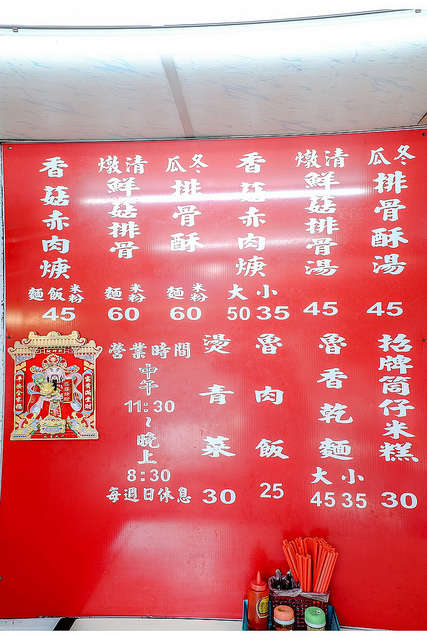 冬瓜排骨酥湯
45
清燉鮮菇排骨湯
45
香菇赤肉焿
大 小
50 35
冬瓜排骨酥
米粉 麵
60
清燉鮮菇排骨
米粉 麵
60
香菇赤肉焿
米粉 飯 麵
45
招牌筒仔米糕
30
魯香乾麵
大 小
45 35
魯肉飯
25
燙青菜
30
營業時間
中午
11:30
~
晚上
8:30
每週日休息